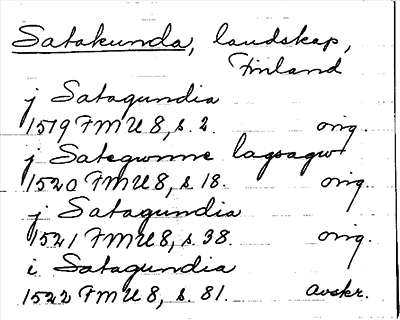 Satakunda, landskap,
Finland
j Satagundia
1519 FMU 8, s. 2. orig.
j Sategwnne lagsagw
1520 FMU 8, s. 18. orig.
j Satagundia
1521 FMU 8, s. 38. orig.
i Satagundia
1522 FMU 8, s. 81. avskr.